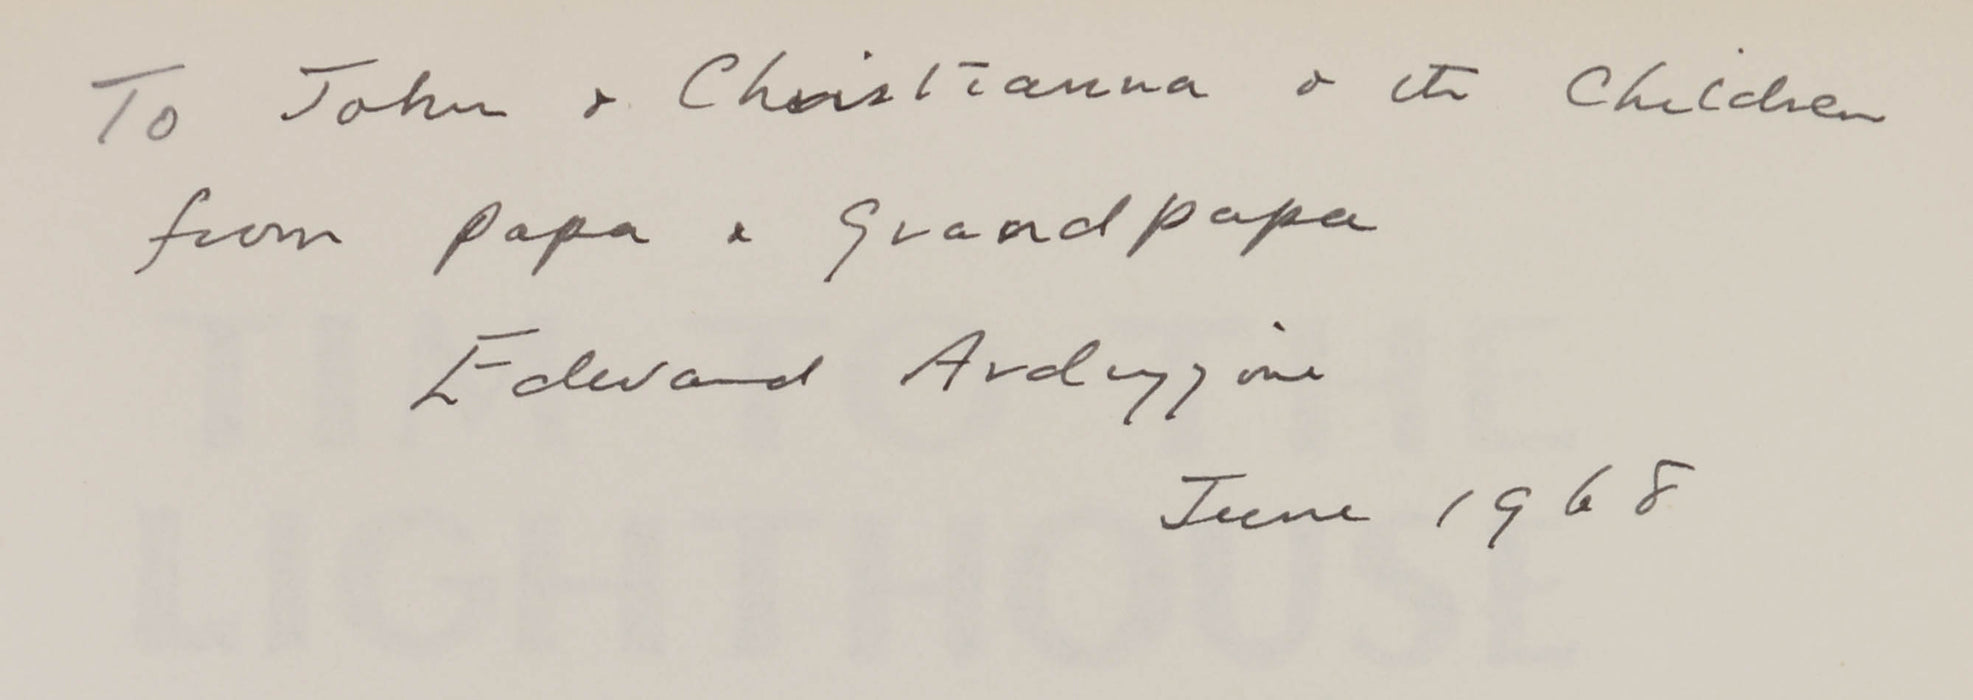 To John & Christianna & the Children
from papa & Grandpapa
Edward Ardizzone
June 1968
TIM TO THE
LIGHTHOUSE